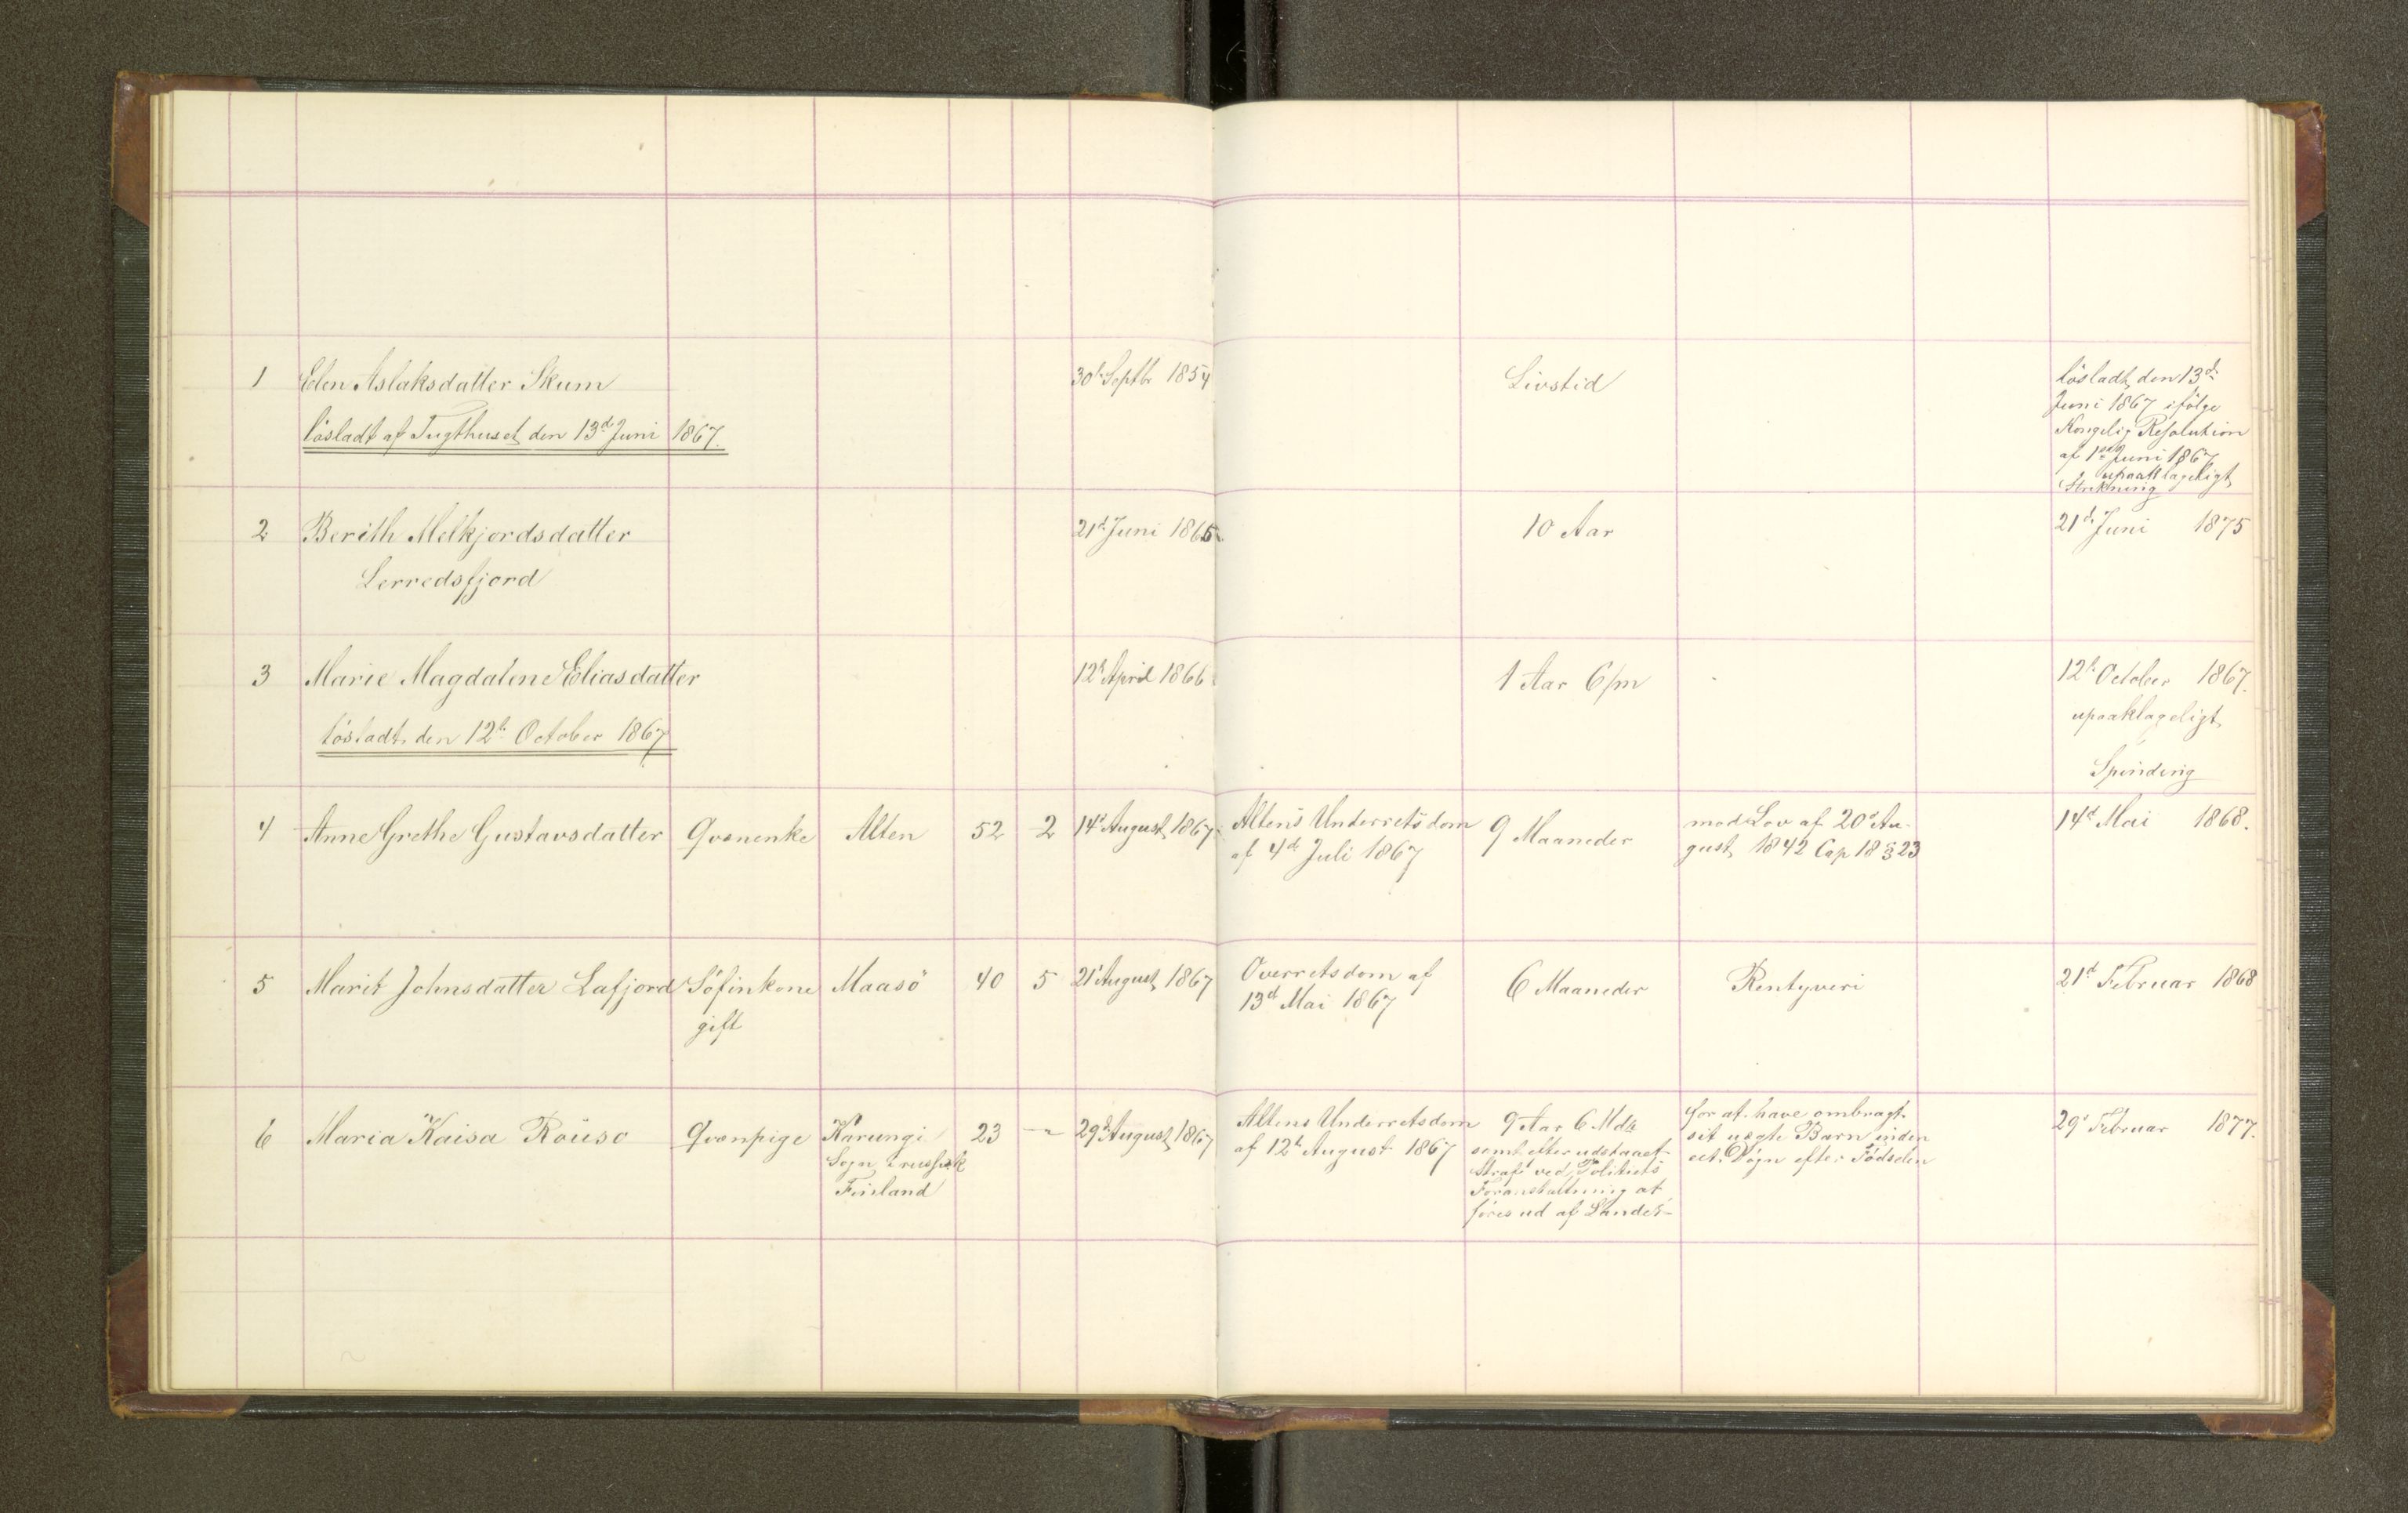 1 Elen Aslaksdatter Skum 30te Septbr 1854 Livstid
lösladt af Tugthuset den 13de Juni 1867.
lösladt den 13de
Juni 1867 ifölge
Kongelig Resolution
af 1ste Juni 1867
upaaklageligt
Strikning
2 Berith Melkjordsdatter 21de Juni 1865. 10 Aar 21de Juni 1875
Lerredsfjord
3 Marie Magdalene Eliasdatter 12te April 1866 1 Aar 6/m 12te October 1867.
lösladt den 12te October 1867.
upaaklageligt
Spinding
4 Anne Grethe Gustavsdatter Qvænenke Alten 52 2 14de August 1867 Altens Underretsdom
af 4de Juli 1867 9 Maaneder mod Lov af 20de Au-
gust 1842 Cap 18 § 23 14de Mai 1868.
5 Marit Johnsdatter Lafjord Söfinkone
gift Maasö 40 5 21de August 1867 Overretsdom af
13de Mai 1867 6 Maaneder Rentyveri 21de Februar 1868
6 Maria Kaisa Rouso Qvænpige Karungi
Sogn i russisk
Finland 23 — " 29de August 1867 Altens Underretsdom
af 12te August 1867 9 Aar 6 Mdr
samt efter udstaaet
Straf ved Politiets
Foranstaltning at
föres ud af Landet
for at have ombragt
sit uægte Barn inden
eet Dögn efter Födselen
29de Februar 1877.